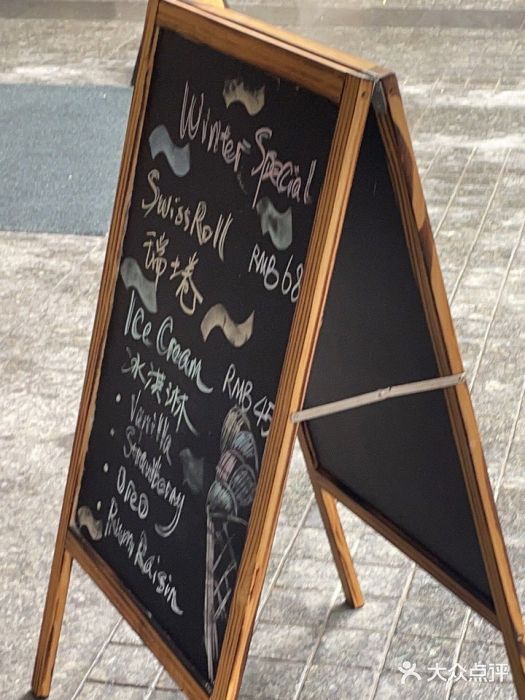 Winter Special
Swiss Roll
瑞士卷 RMB 68
Ice Cream
冰淇淋 RMB 45
• Vanilla
• Strawberry
• Oreo
• Rum Raisin
大众点评